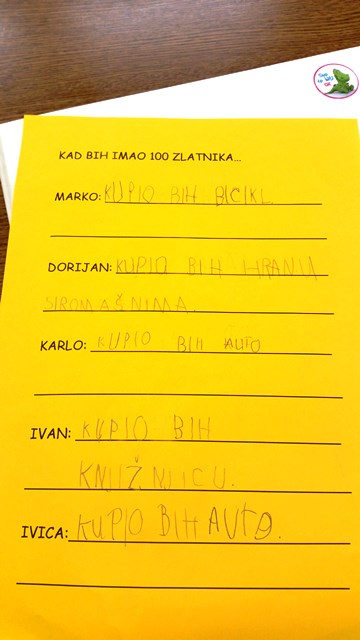 KAD BIH IMAO 100 ZLATNIKA...
MARKO: KUPIO BIH BICIKL
DORIJAN: KUPIO BIH HRANU
SIROMAŠNIMA.
KARLO: KUPIO BIH AUTO
IVAN: KUPIO BIH
KNJIŽNICU.
IVICA: KUPIO BIH AUTO.